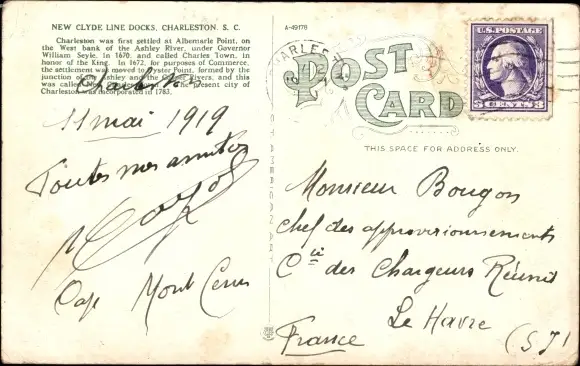 NEW CLYDE LINE DOCKS, CHARLESTON, S. C.
Charleston was first settled at Albemarle Point, on
the West bank of the Ashley River, under Governor
William Seyle, in 1670, and called Charles Town, in
honor of the King. In 1672, for purposes of Commerce,
the settlement was moved to Oyster Point, formed by the
junction of the Ashley and the Cooper Rivers, and this
was called New Charles Town. The present city of
Charleston was incorporated in 1783.
Charleston
11 mai 1919
Toutes mes amitiés
Cap Mont Cenis
A-49178
POST CARD
U.S. POSTAGE
3 CENTS 3
THIS SPACE FOR ADDRESS ONLY.
Monsieur Bougon
chef des approvisionnements
Cie des Chargeurs Réunis
Le Havre
France
(S I)